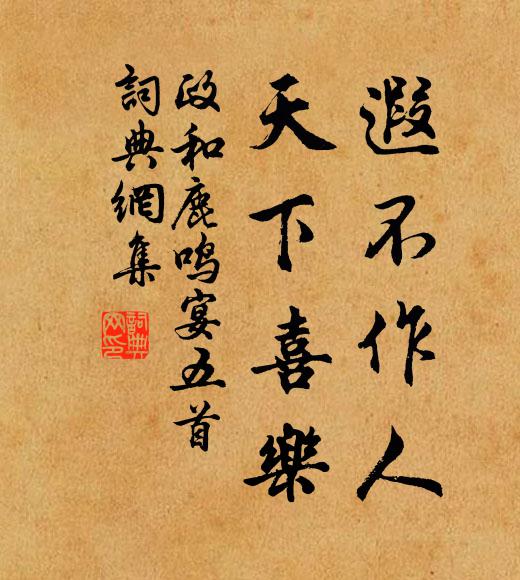 遐不作人
天下喜樂
政和鹿鳴宴五首
詞典網集
詞典网印